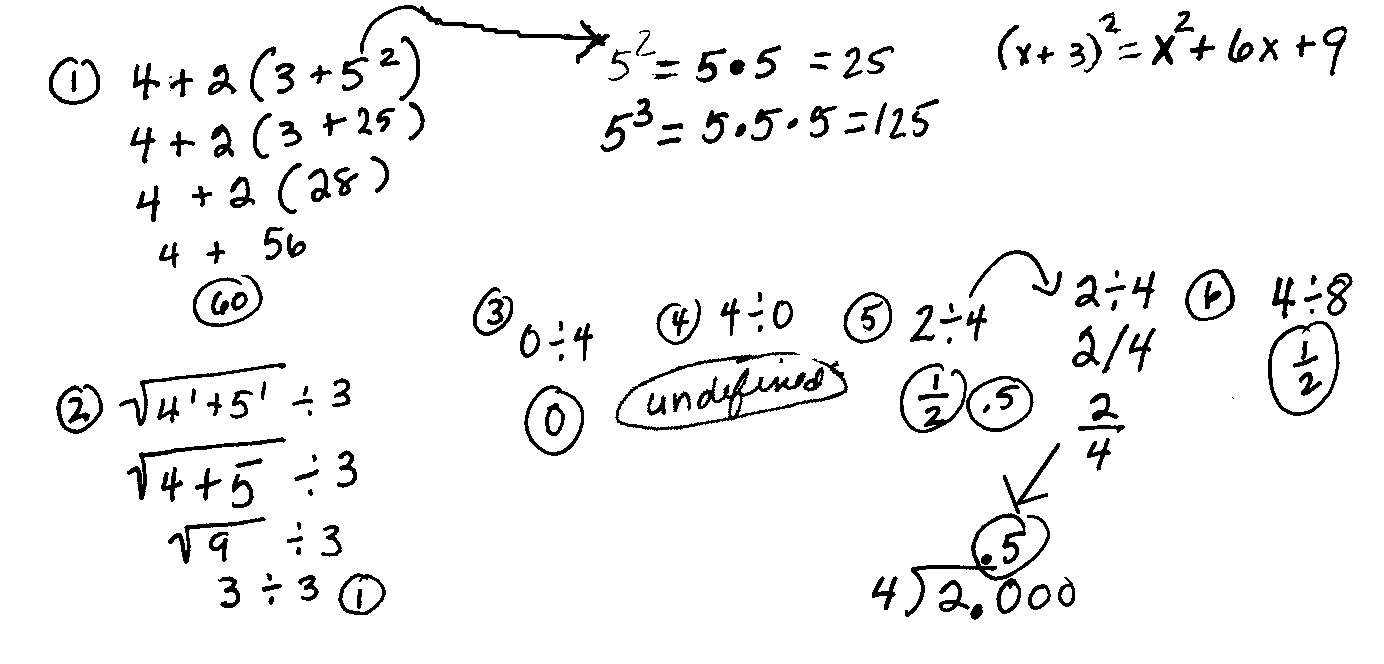 ① 4 + 2 (3 + 5²)
4 + 2 (3 + 25)
4 + 2 (28)
4 + 56
60
5² = 5•5 = 25
5³ = 5•5•5 = 125
(x + 3)² = x² + 6x + 9
② √(4¹+5¹) ÷ 3
√(4+5) ÷ 3
√9 ÷ 3
3 ÷ 3 ①
③ 0÷4
0
④ 4÷0
undefined
⑤ 2÷4
1/2 .5
2÷4
2/4
2/4
.5
4)2.000
⑥ 4÷8
1/2